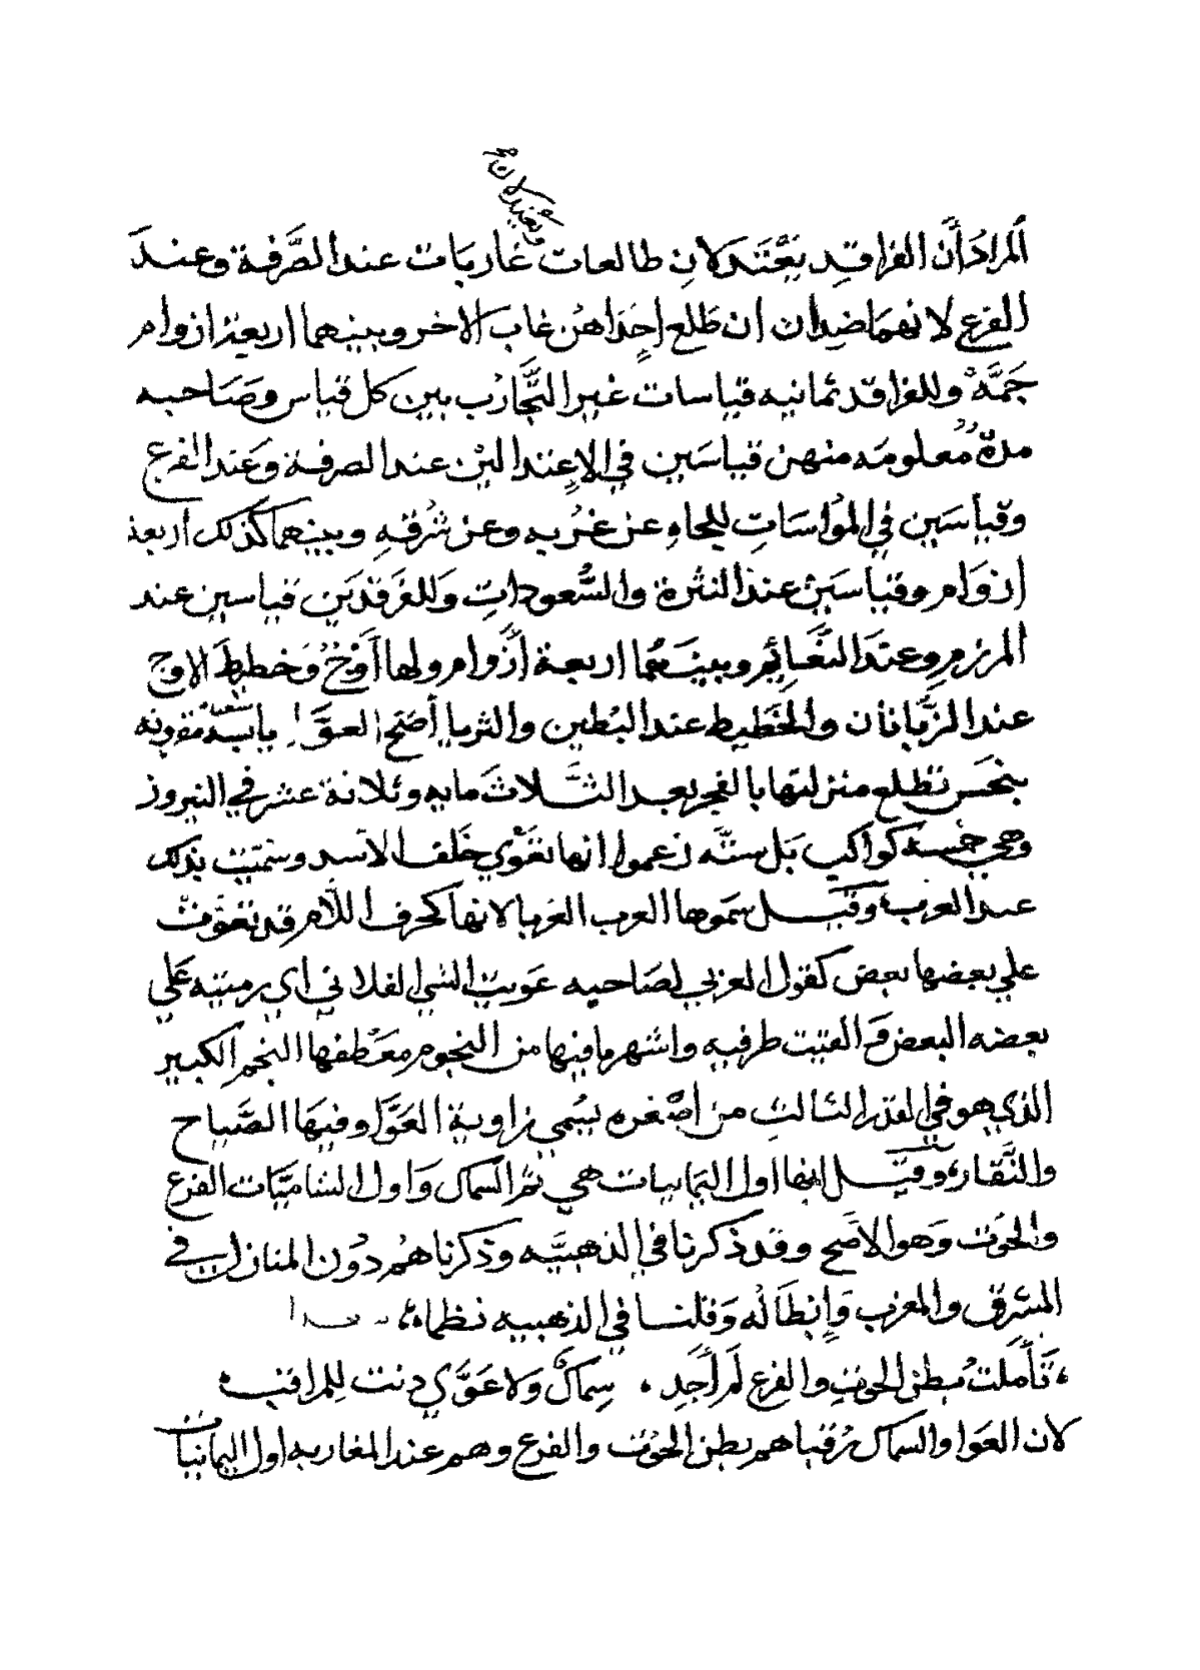 يعتدلان
المرادُ أنَّ الفراقدِ يَعْتَدلانِ طالعات غاربَات عند الصَّرفة وعندَ
الفرع لانهمَا ضدان ان طَلع احَداهنَّ غاب الاخر وبينهما اربعة ازوام
جَمَّهْ وللفراقد ثمانيه قياسات غير التَّجارْب بين كل قياس وصَاحبه
مدةٌ مُعلومَه منهن قياسَين في الاعتدالين عند الصرفة وعَند الفرع
وقياسَين في المؤاسَاتِ للجاهِ عن غَربه وعن شُرقهِ وبينهما كذلك اربعة
ازوَام وقياسَين عند النثرة والسُّعوداتِ وَللفَرقدَين قياسين عند
المرزم وعندَ النَّعَايم وبينَهُما اربعة أَزْوام ولها أَوْجٌ وَخطيط الاوج
عند الزُّبانان والخَطيط عند البُطين والثريا أصَح العوَّا يابسَةٌ مقرونه
بنحَس تطلع منزلتها بالفجر بعد الثَّلاثَمايه وثلاثة عشر في النيروز
وهي خمسة كواكب بَل ستَّه زعموا انها تعْوي خَلف الاسد وسُمّيَت بذلك
عند العرب وقيَل سمَوها العرب العَوا لانها كحرف اللَّام قد تعوَّت
علي بعضها بعض كقول العربي لصَاحبه عَويت الشي الفلاني اي رميته عَلي
بعضه البعض والفتيت طرفيه واشهر ما فيها من النجوم معَطفها النجم الكبير
الذي هو في القدر الثالثِ من أصْغره ليُمي زاوية العَوَّا وفيهَا الصَّياح
والنَّقار وقيَّل انها اول اليَمانيات هي ثم السّماك وَاول الشاميَّات الفرع
والحُوت وَهو الاصَح وقد ذكرنا في الذهبيَّه وذكرناهُم دوُن المنازل في
المشرق والمغرب وَإبطَالُه وَقلنا في الذهبيه نظما
تَأملتُ بطن الحوت والفرع لَم أَجَدِ سِماكٌ وَلا عَوَّي دنت للمراقب
لان العَوا والسماك رُقباهم بطن الحُوْت والفرع وهم عند المغاربه اول اليمانيات